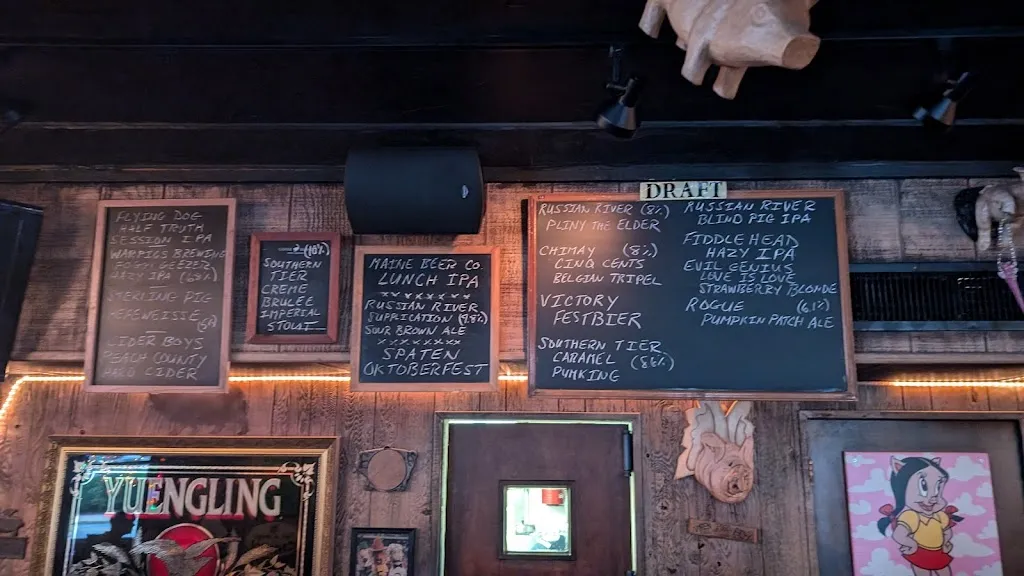 FLYING DOG
HALF TRUTH
SESSION IPA
WARPIGS BREWING
HAZY IPA
STERLING PIG
HEFEWEISSE
CIDER BOYS
PEACH COUNTY
HARD CIDER
(10%)
SOUTHERN
TIER
CREME
BRULEE
IMPERIAL
STOUT
MAINE BEER CO.
LUNCH IPA
RUSSIAN RIVER
SUPPLICATION
SOUR BROWN ALE
SPATEN
OKTOBERFEST
DRAFT
RUSSIAN RIVER (8%)
PLINY THE ELDER
CHIMAY (8%)
CINQ CENTS
BELGIAN TRIPEL
VICTORY
FESTBIER
SOUTHERN TIER
CARAMEL
PUMKING
RUSSIAN RIVER
BLIND PIG IPA
FIDDLEHEAD
HAZY IPA
EVIL GENIUS
LOVE IS LOVE
STRAWBERRY BLONDE
ROGUE (6.1%)
PUMPKIN PATCH ALE
YUENGLING